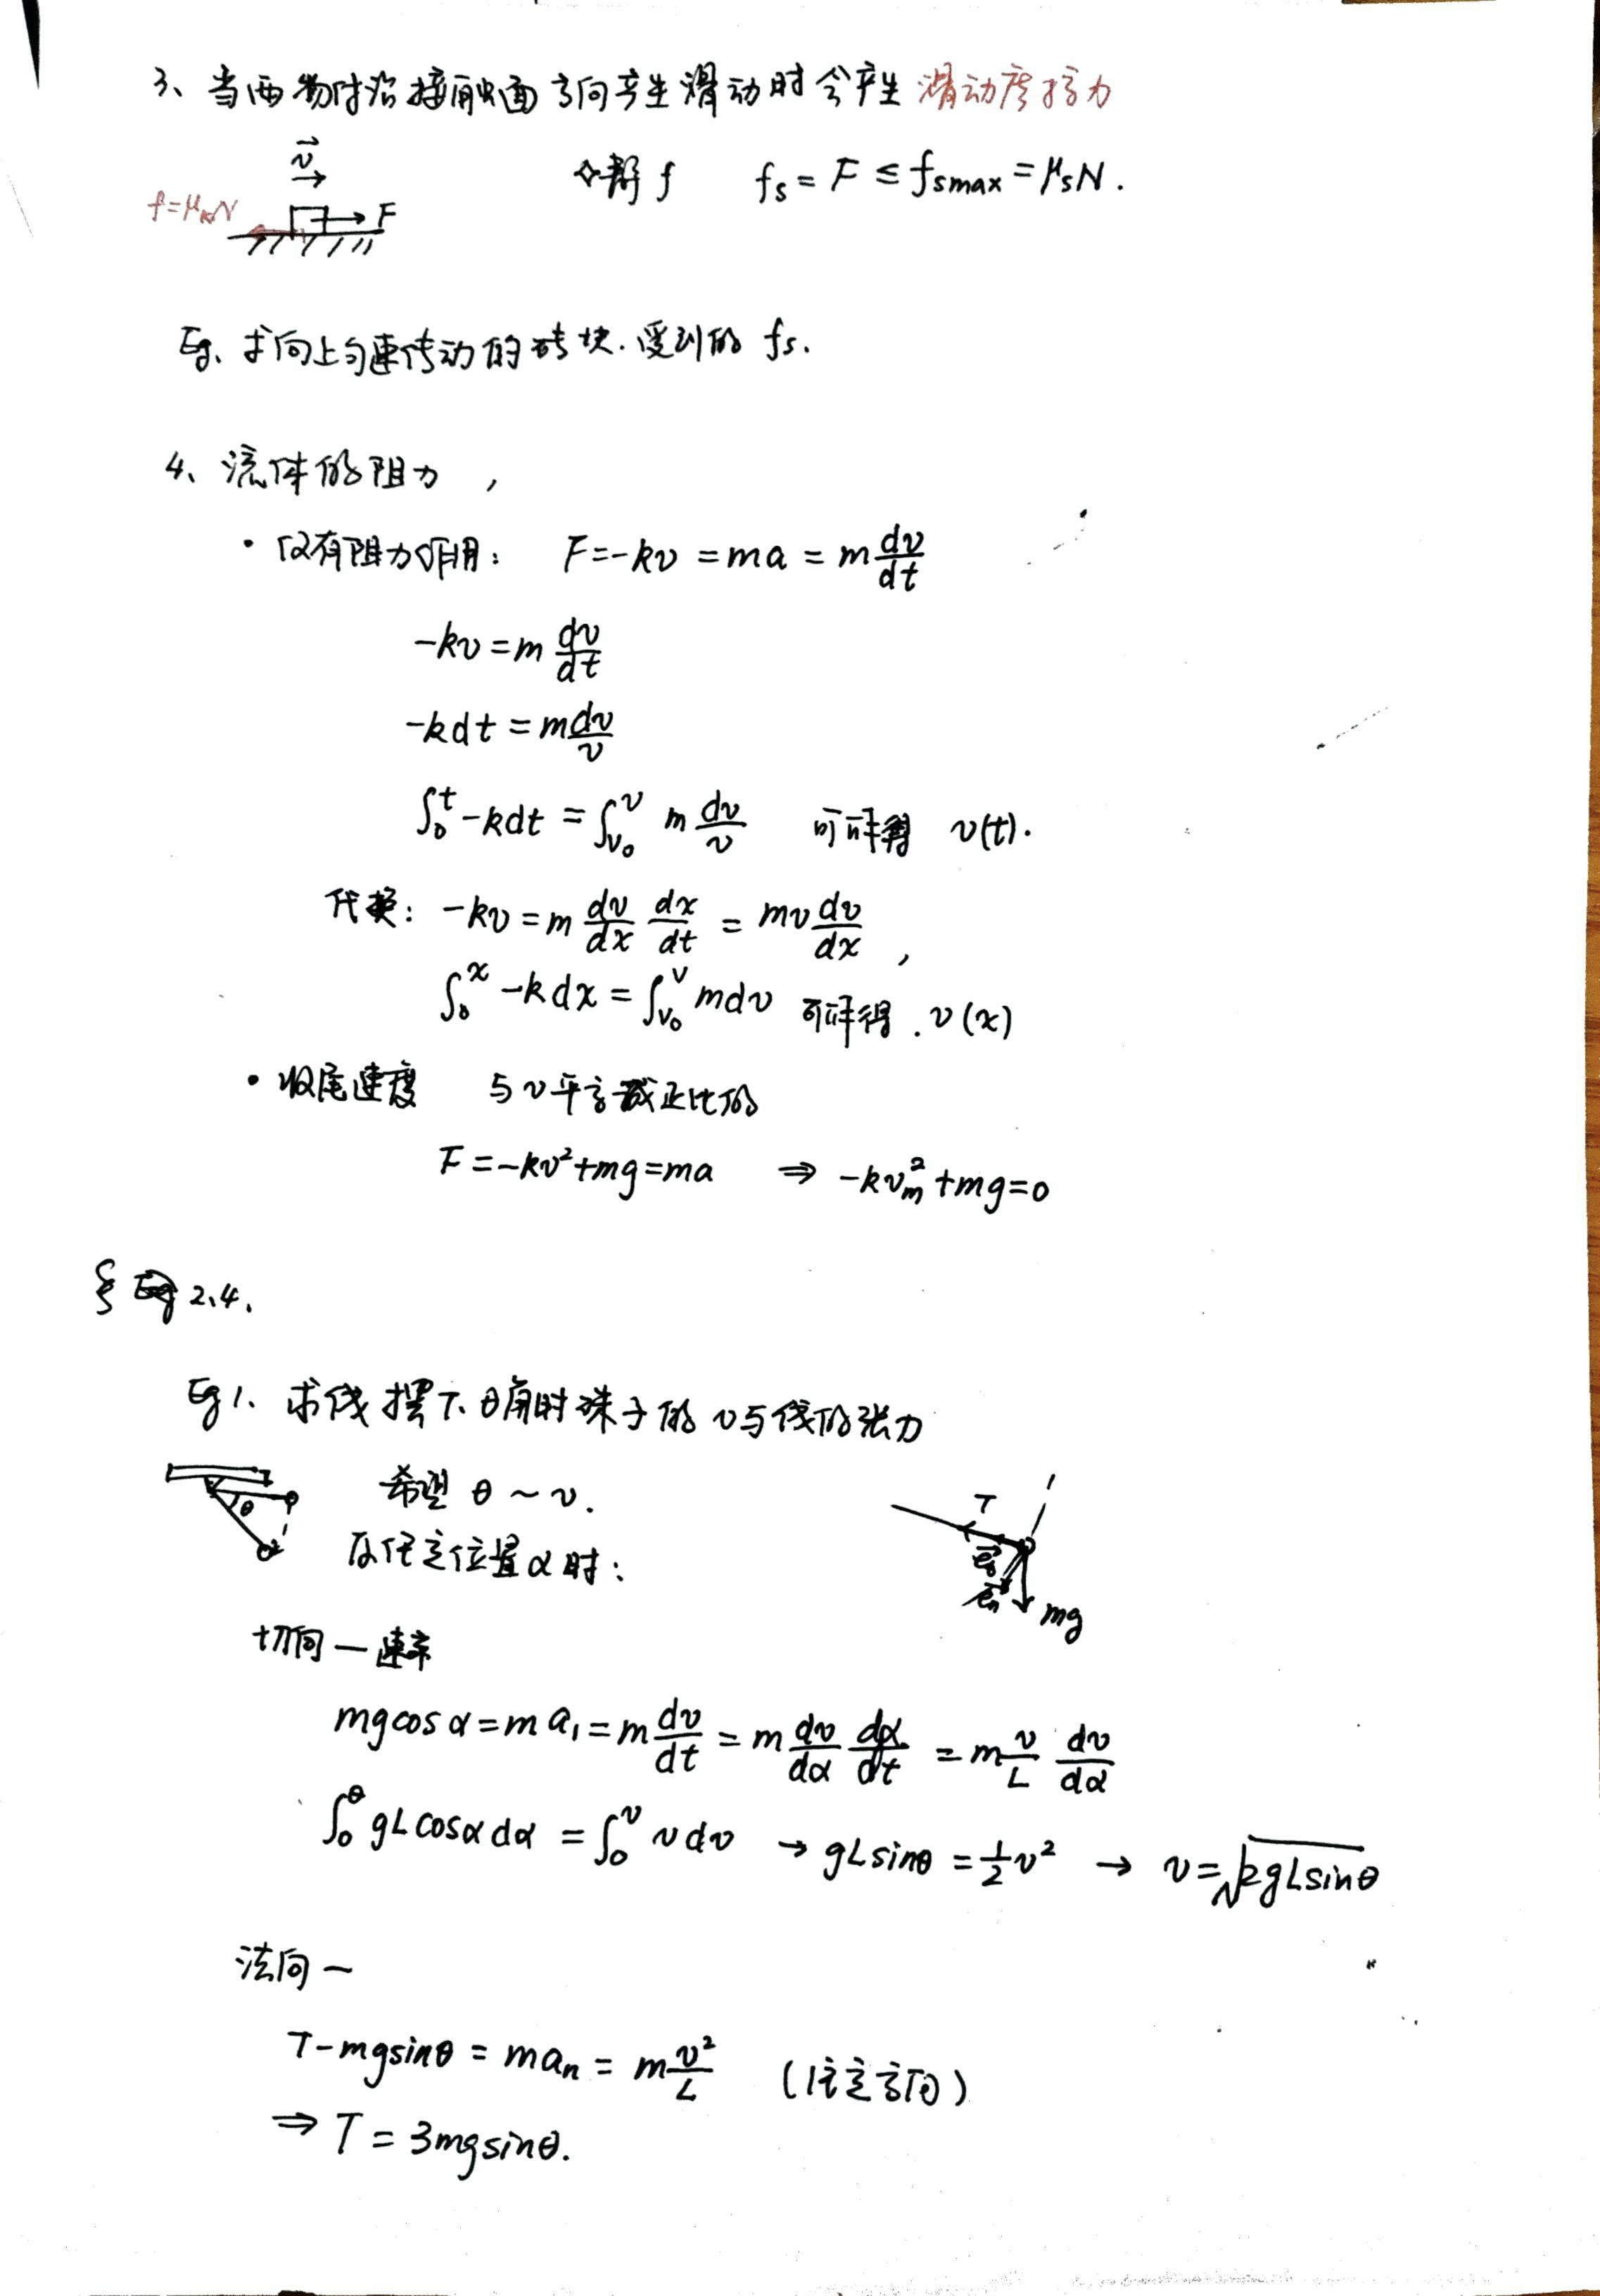 3、当两物体沿接触面方向产生滑动时会产生滑动摩擦力
v⃗
静f fs = F ≤ fsmax = μsN.
f=μkN F
Eg、求向上匀速传动的砖块.受到的 fs.
4、流体的阻力,
·仅有阻力作用: F=-kv=ma=m dv/dt
-kv=m dv/dt
-kdt=m dv/v
∫₀ᵗ -kdt = ∫v₀^v m dv/v 可解得 v(t).
代换: -kv=m dv/dx dx/dt = mv dv/dx,
∫₀ˣ -kdx = ∫v₀^v mdv 可解得. v(x)
·收尾速度 与v平方成正比的
F=-kv²+mg=ma ⇒ -kvm²+mg=0
§ 2.4.
Eg1、求线摆下θ角时珠子的v与线的张力
θ 希望 θ~v.
在任意位置α时:
T
e⃗n
mg
切向—速率
mgcosα=ma₁=m dv/dt=m dv/dα dα/dt=m v/L dv/dα
∫₀^θ gLcosαdα=∫₀^v vdv → gLsinθ=½v² → v=√2gLsinθ
法向—
T-mgsinθ=man=m v²/L (注意方向)
⇒ T=3mgsinθ.